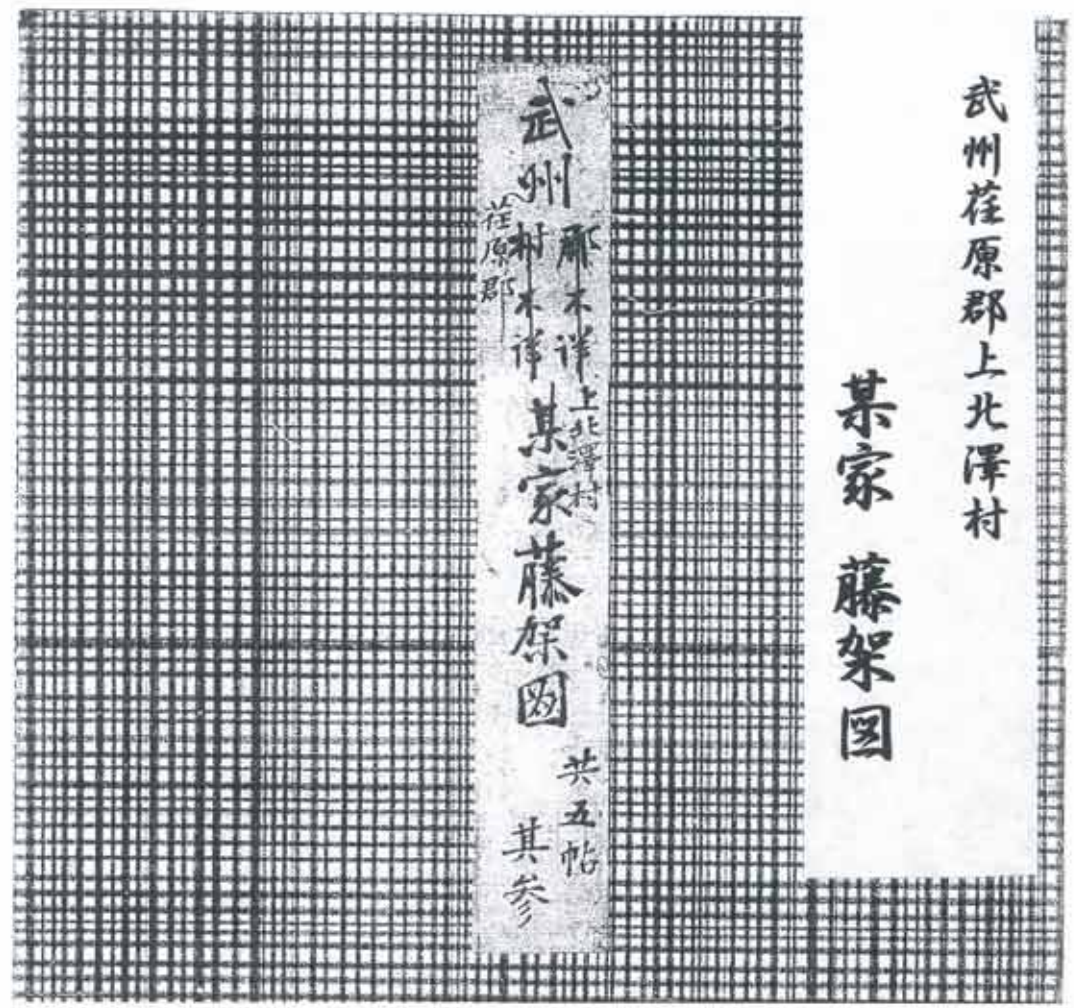 武州荏原郡上北澤村
某家 藤架図
武州
郡不詳
村不詳
荏原郡
上北澤村
某家藤架図
共五帖
其参